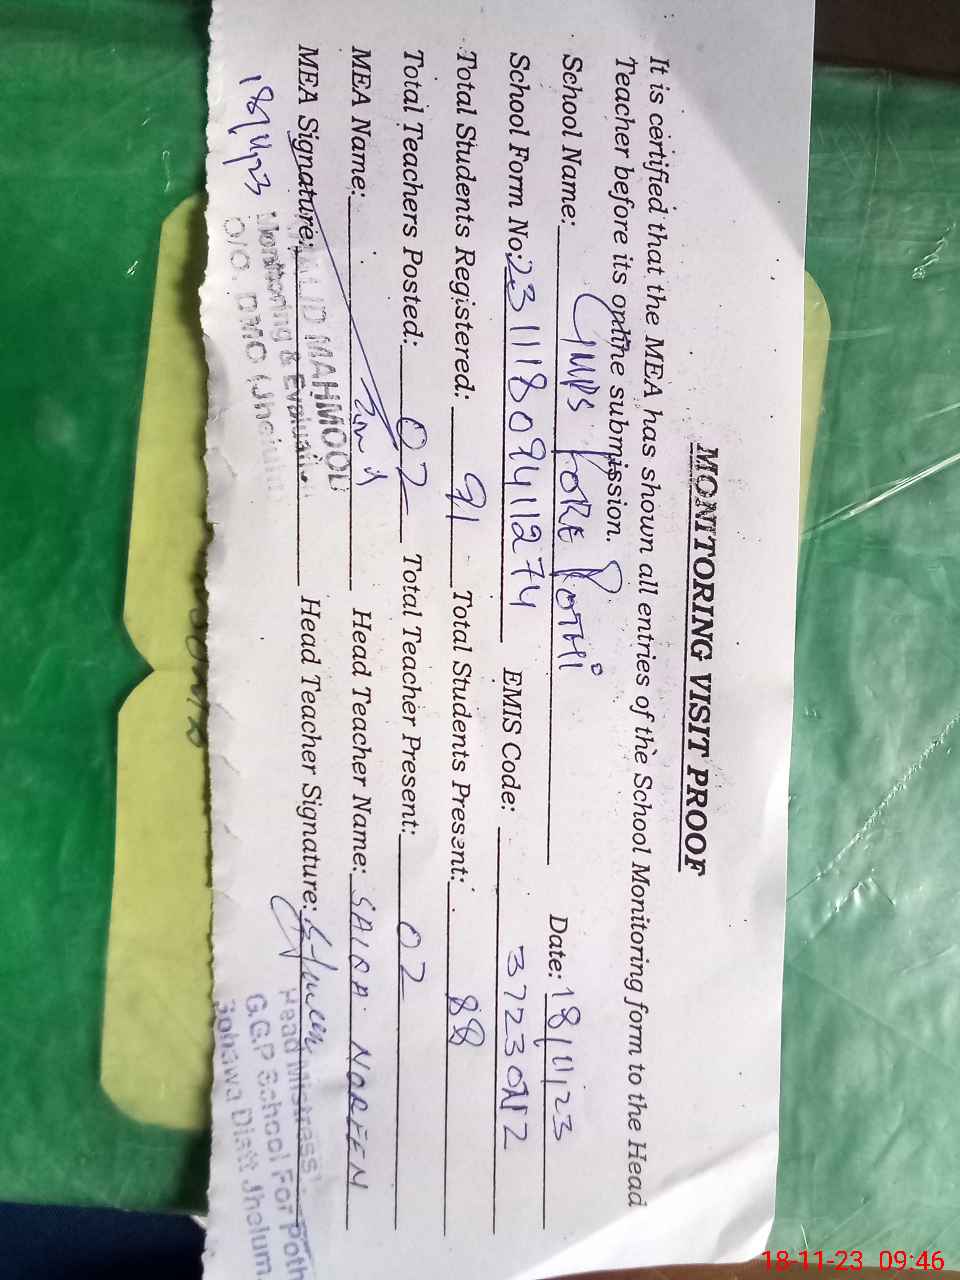 MONITORING VISIT PROOF
It is certified that the MEA has shown all entries of the School Monitoring form to the Head
Teacher before its online submission.
School Name: GMPS FORE POTHI Date: 18/11/23
School Form No: 23111809411274 EMIS Code:
Total Students Registered: 91 Total Students Present: 88
Total Teachers Posted: 02 Total Teacher Present: 02
MEA Name: Head Teacher Name: SAIQA NOREEN
MEA Signature: Head Teacher Signature:
18/11/23
MAHMOOD
Monitoring & Evaluation
O/O. DMO (Jhelum)
Head Mistress
G.G.P School For Poth
Sohawa Distt Jhelum.
18-11-23 09:46